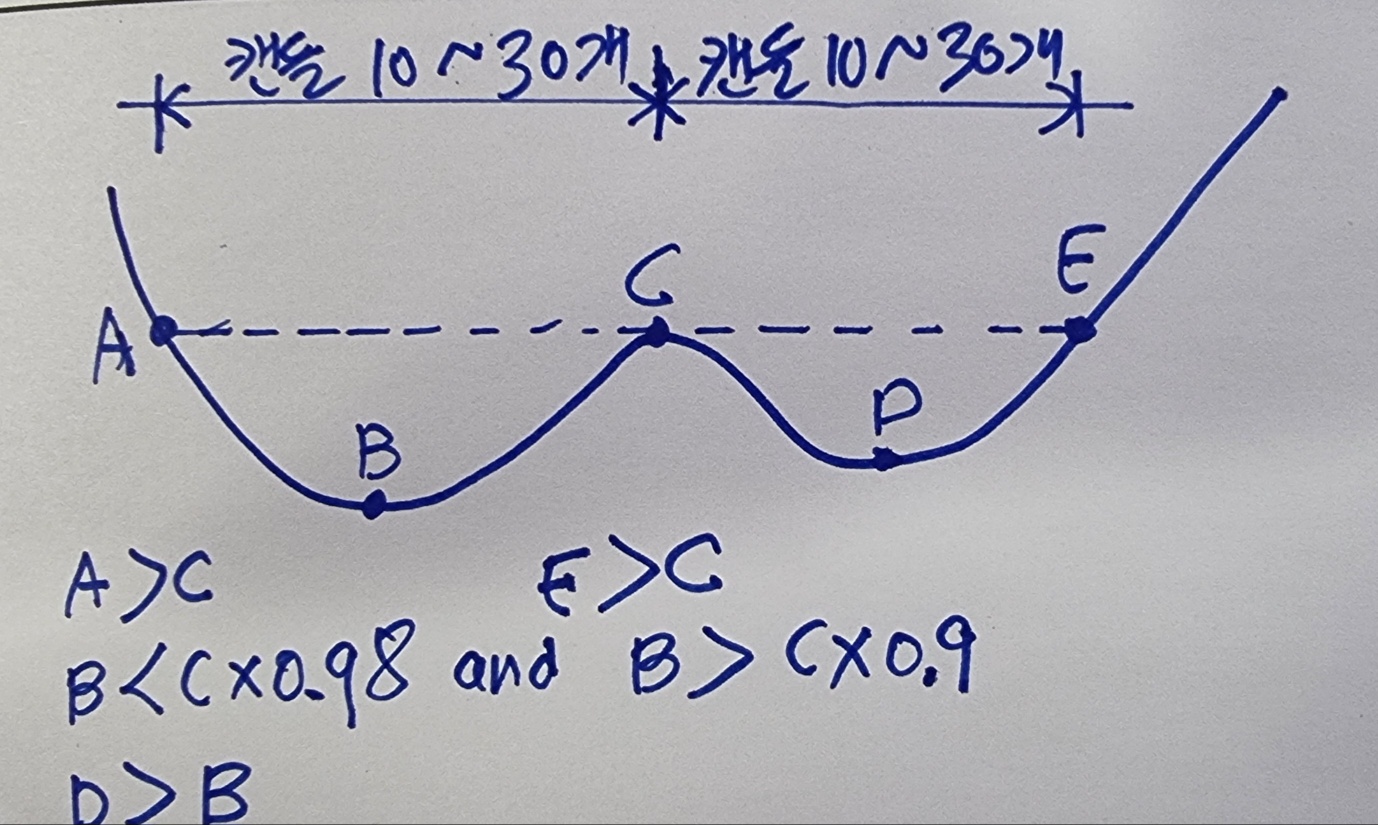 캔들 10~30개 캔들 10~30개
C E
A
D
B
A>C E>C
B<C×0.98 and B>C×0.9
D>B